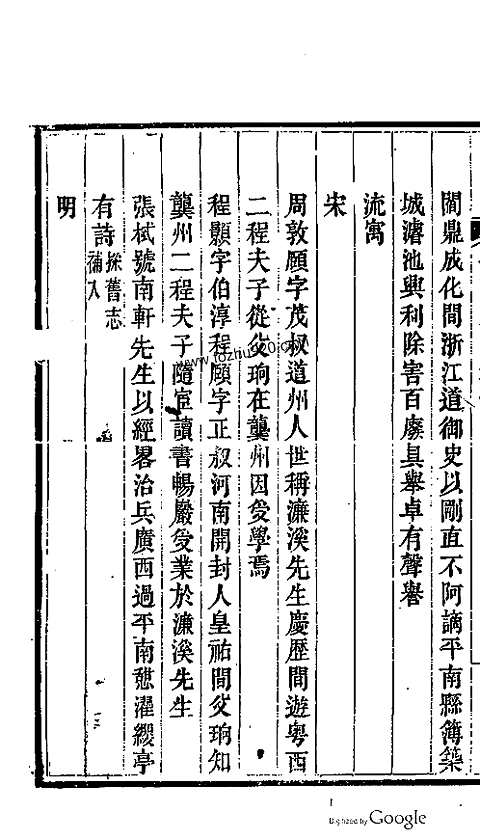 閻鼎成化間浙江道御史以剛直不阿謫平南縣簿築
城濬池興利除害百廢具舉卓有聲譽
流寓
宋
周敦頤字茂叔道州人世稱濂溪先生慶歷間遊粤西
二程夫子從父珦在龔州因受學焉
程顥字伯淳程頤字正叔河南開封人皇祐間父珦知
龔州二程夫子隨宦讀書暢巖受業於濂溪先生
張栻號南軒先生以經畧治兵廣西過平南憩濯纓亭
有詩採舊志補入
明
www.tozhu20.com
Digitized by Google